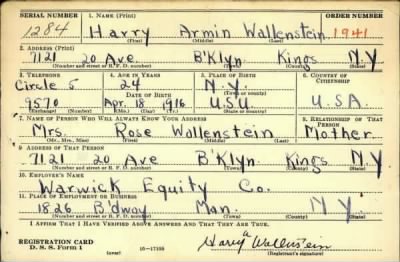 SERIAL NUMBER 1. NAME (Print) ORDER NUMBER
1284 Harry Armin Wallenstein 1941
(First) (Middle) (Last)
2. ADDRESS (Print)
7121 20 Ave B'Klyn Kings N.Y
(Number and street or R. F. D. number) (Town) (County) (State)
3. TELEPHONE 4. AGE IN YEARS 5. PLACE OF BIRTH 6. COUNTRY OF CITIZENSHIP
Circle 5 24 N.Y.
DATE OF BIRTH (Town or county)
9570 Apr. 18 1916 U.S.U. U.S.A.
(Exchange) (Number) (Mo.) (Day) (Yr.) (State or country)
7. NAME OF PERSON WHO WILL ALWAYS KNOW YOUR ADDRESS 8. RELATIONSHIP OF THAT PERSON
Mrs. Rose Wallenstein Mother
(Mr., Mrs., Miss) (First) (Middle) (Last)
9. ADDRESS OF THAT PERSON
7121 20 Ave B'Klyn. Kings N Y
(Number and street or R. F. D. number) (Town) (County) (State)
10. EMPLOYER'S NAME
Warwick Equity Co.
11. PLACE OF EMPLOYMENT OR BUSINESS
1826 B'dway Man. N Y
(Number and street or R. F. D. number) (Town) (County) (State)
I AFFIRM THAT I HAVE VERIFIED ABOVE ANSWERS AND THAT THEY ARE TRUE.
REGISTRATION CARD
D. S. S. Form 1 16—17105 Harry A Wallenstein
(Registrant's signature)